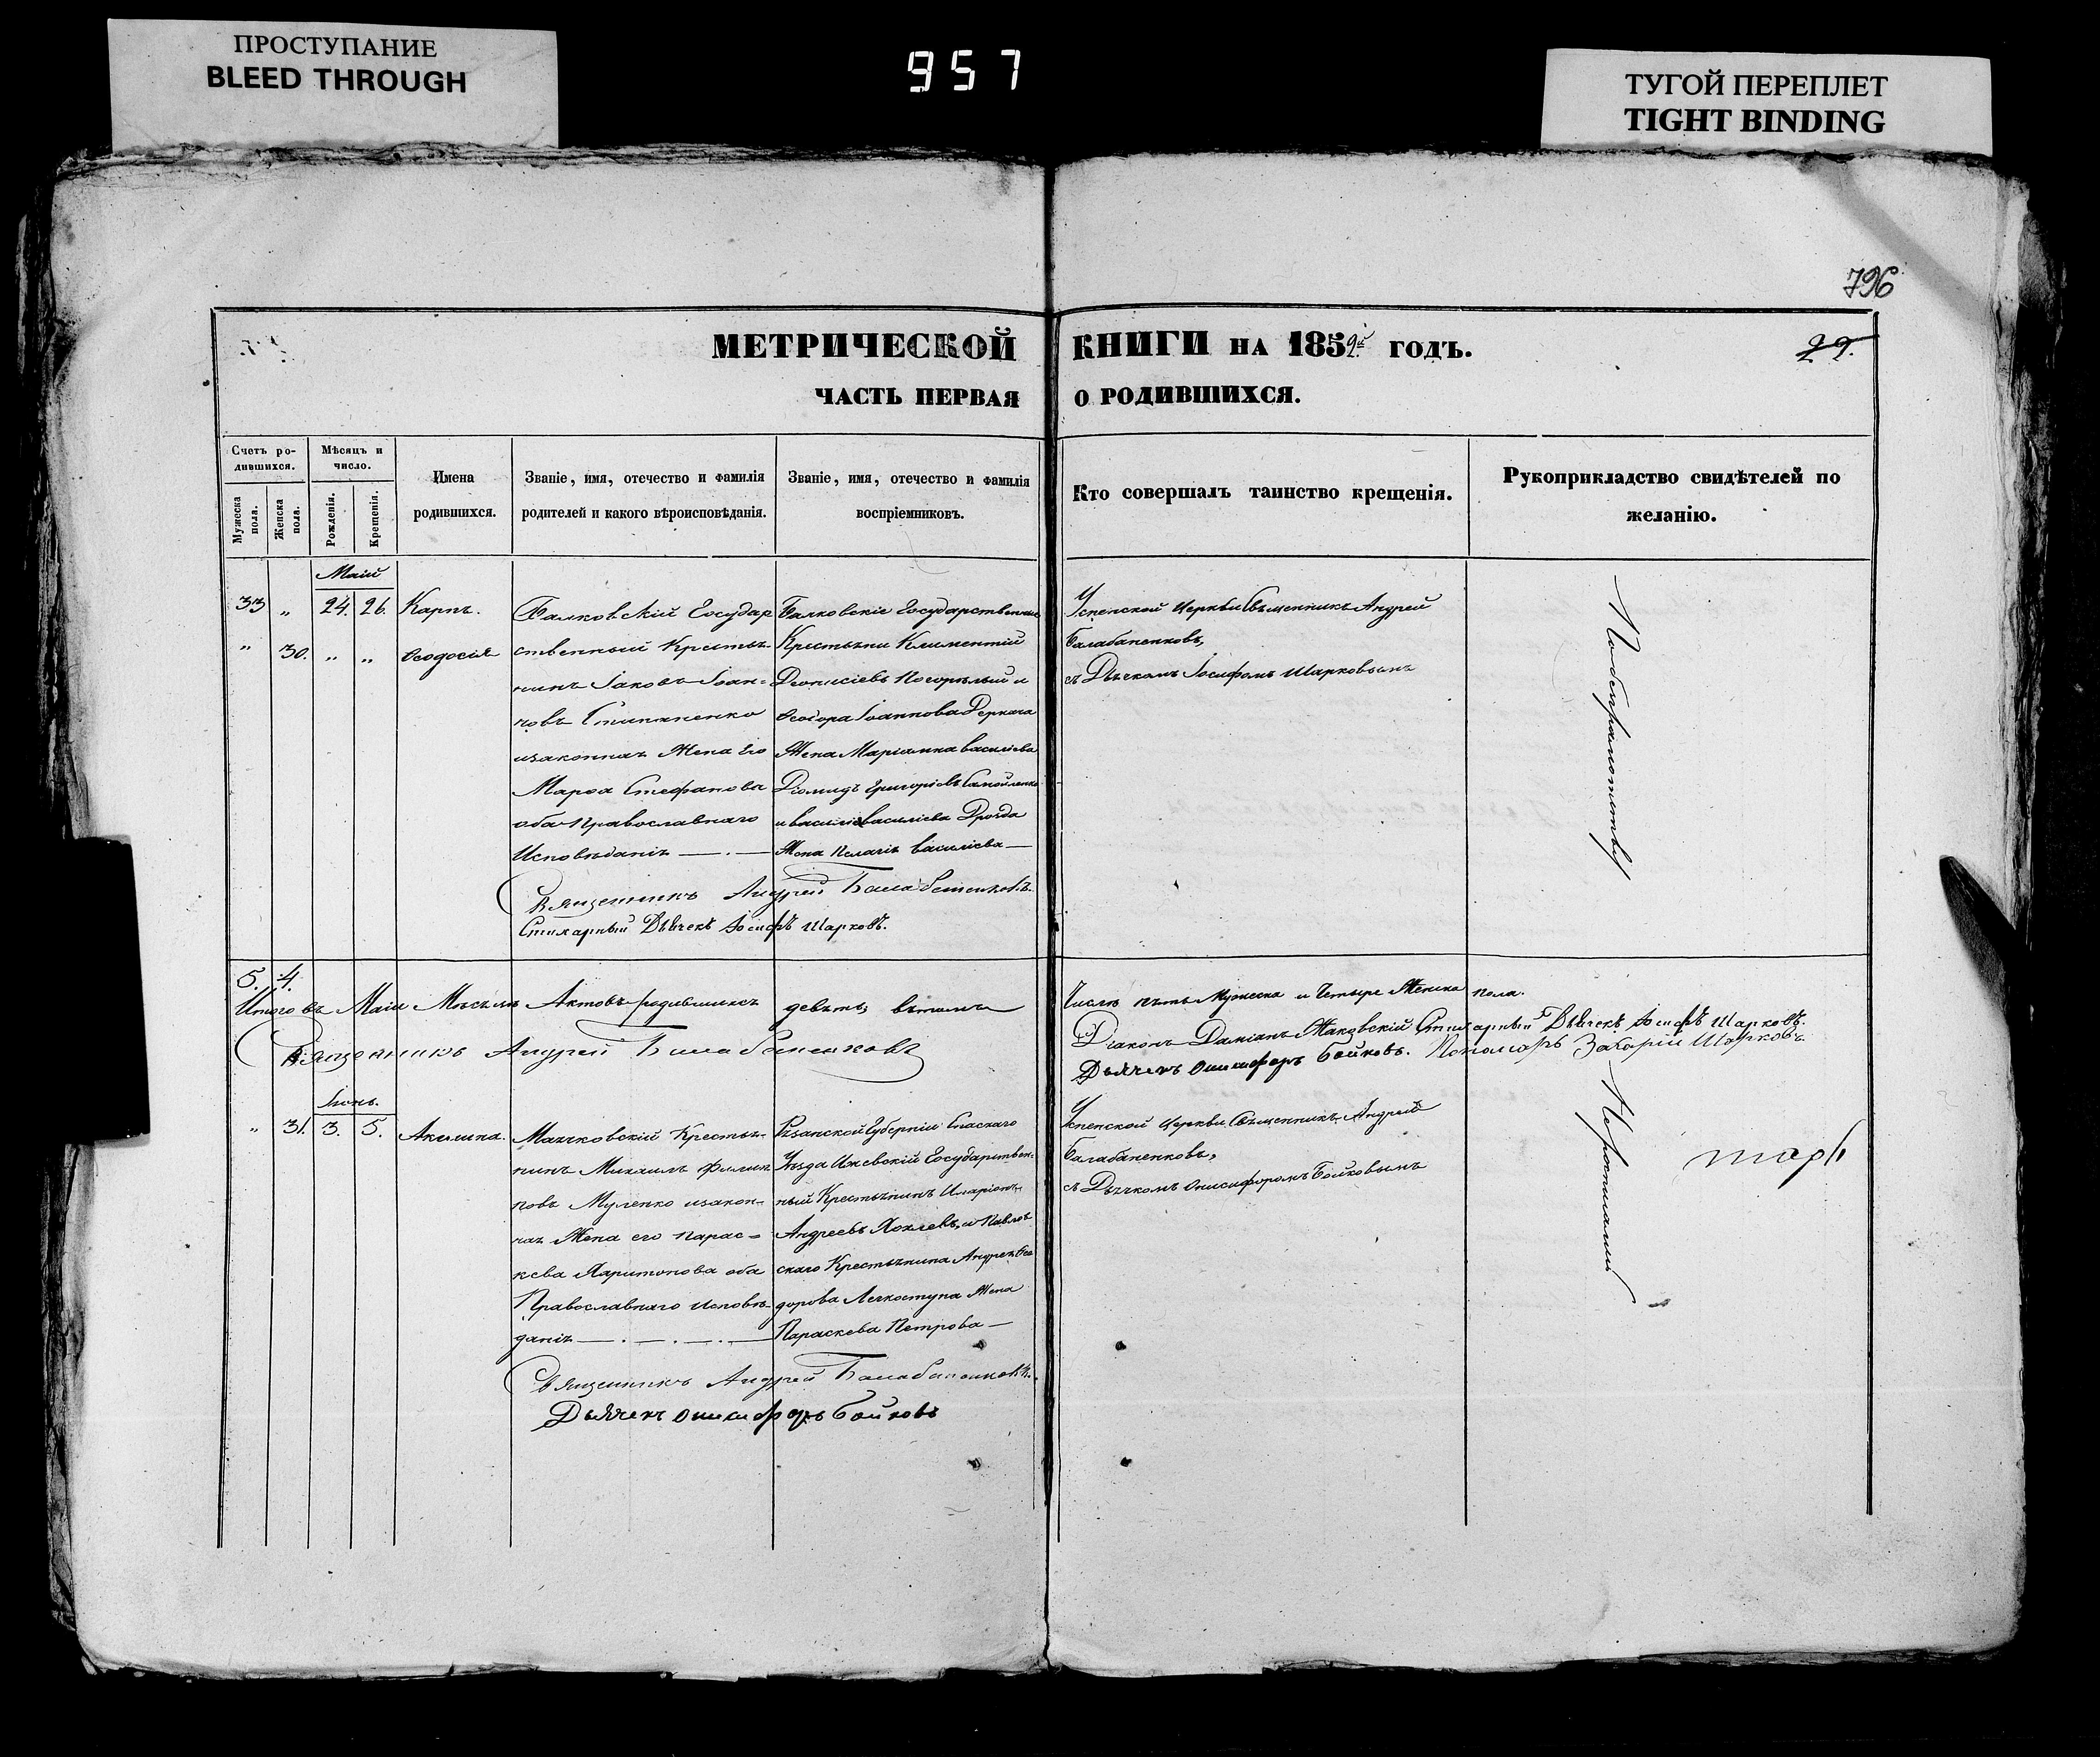 ПРОСТУПАНИЕ
BLEED THROUGH
957
ТУГОЙ ПЕРЕПЛЕТ
TIGHT BINDING
796
МЕТРИЧЕСКОЙ КНИГИ НА 1859й ГОДЪ.
29.
ЧАСТЬ ПЕРВАЯ О РОДИВШИХСЯ.
Счетъ ро-
дившихся.
Мужеска пола.
Женска пола.
Мѣсяцъ и
число.
Рожденія.
Крещенія.
Имена
родившихся.
Званіе, имя, отечество и фамилія
родителей и какого вѣроисповѣданія.
Званіе, имя, отечество и фамилія
воспріемниковъ.
Кто совершалъ таинство крещенія.
Рукоприкладство свидѣтелей по
желанію.
Маій
33 „ 24. 26. Карпъ.
„ 30. „ „ Ѳеодосія
Балковскій Государ
ственный Крестья-
нинъ Іаковъ Іоан-
новъ Степаненко
изаконная Жена Его
Марѳа Стефанова
оба Православнаго
Исповѣданія
Балковскіе Государственные
Крестьяни Климентій
Діонисіевъ Погорѣлый и
Ѳеодора Іоаннова Деркача
Жена Маріанна Василіева
Діомидъ Григоріевъ Самойленко
и Василія Василіева Дрозда
Жена Пелагія Василіева
Успенской Церкви Священникъ Андрей
Балабаненковъ,
съ Дьячкомъ Іосифомъ Шарковымъ
По безграмотству
Священникъ Андрей Балабаненковъ
Стихарный Дьячекъ Іосифъ Шарковъ.
5. 4.
Итого въ Маіи Мѣсяцѣ Актовъ родившихся девять, вътомъ
Числѣ пять Мужеска и Четыре Женска пола.
Священникъ Андрей Балабаненковъ
Діаконъ Даміанъ Стихарный Дьячекъ Іосифъ Шарковъ.
Дьячекъ Онисифоръ Бойковъ. Пономарь Захарій Шарковъ
Іюнь.
„ 31. 3. 5. Акилина.
Маячковскій Крестья-
нинъ Михаилъ Филип
повъ Муленко изакон-
ная Жена его Парас-
кева Харитонова оба
Православнаго Исповѣ-
данія
Рязанской Губерніи Спаскаго
Уѣзда Ижевскій Государствен-
ный Крестьянинъ Иларіонъ
Андреевъ Хохлевъ, и Павлов
скаго Крестьянина Андрея Ѳео
дорова Легкоступа Жена
Параскева Петрова
Успенской Церкви Священникъ Андрей
Балабаненковъ,
съ Дьячкомъ Онисифоромъ Бойковымъ
Священникъ Андрей Балабаненковъ
Дьячекъ Онисифоръ Бойковъ